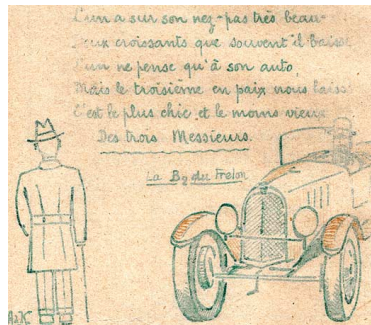 L'un a sur son nez - pas très beau -
Deux croissants que souvent il baisse
L'un ne pense qu'à son auto,
Mais le troisième en paix nous laisse
C'est le plus chic et le moins vieux
Des trois Messieurs.
La B2 du Frelon